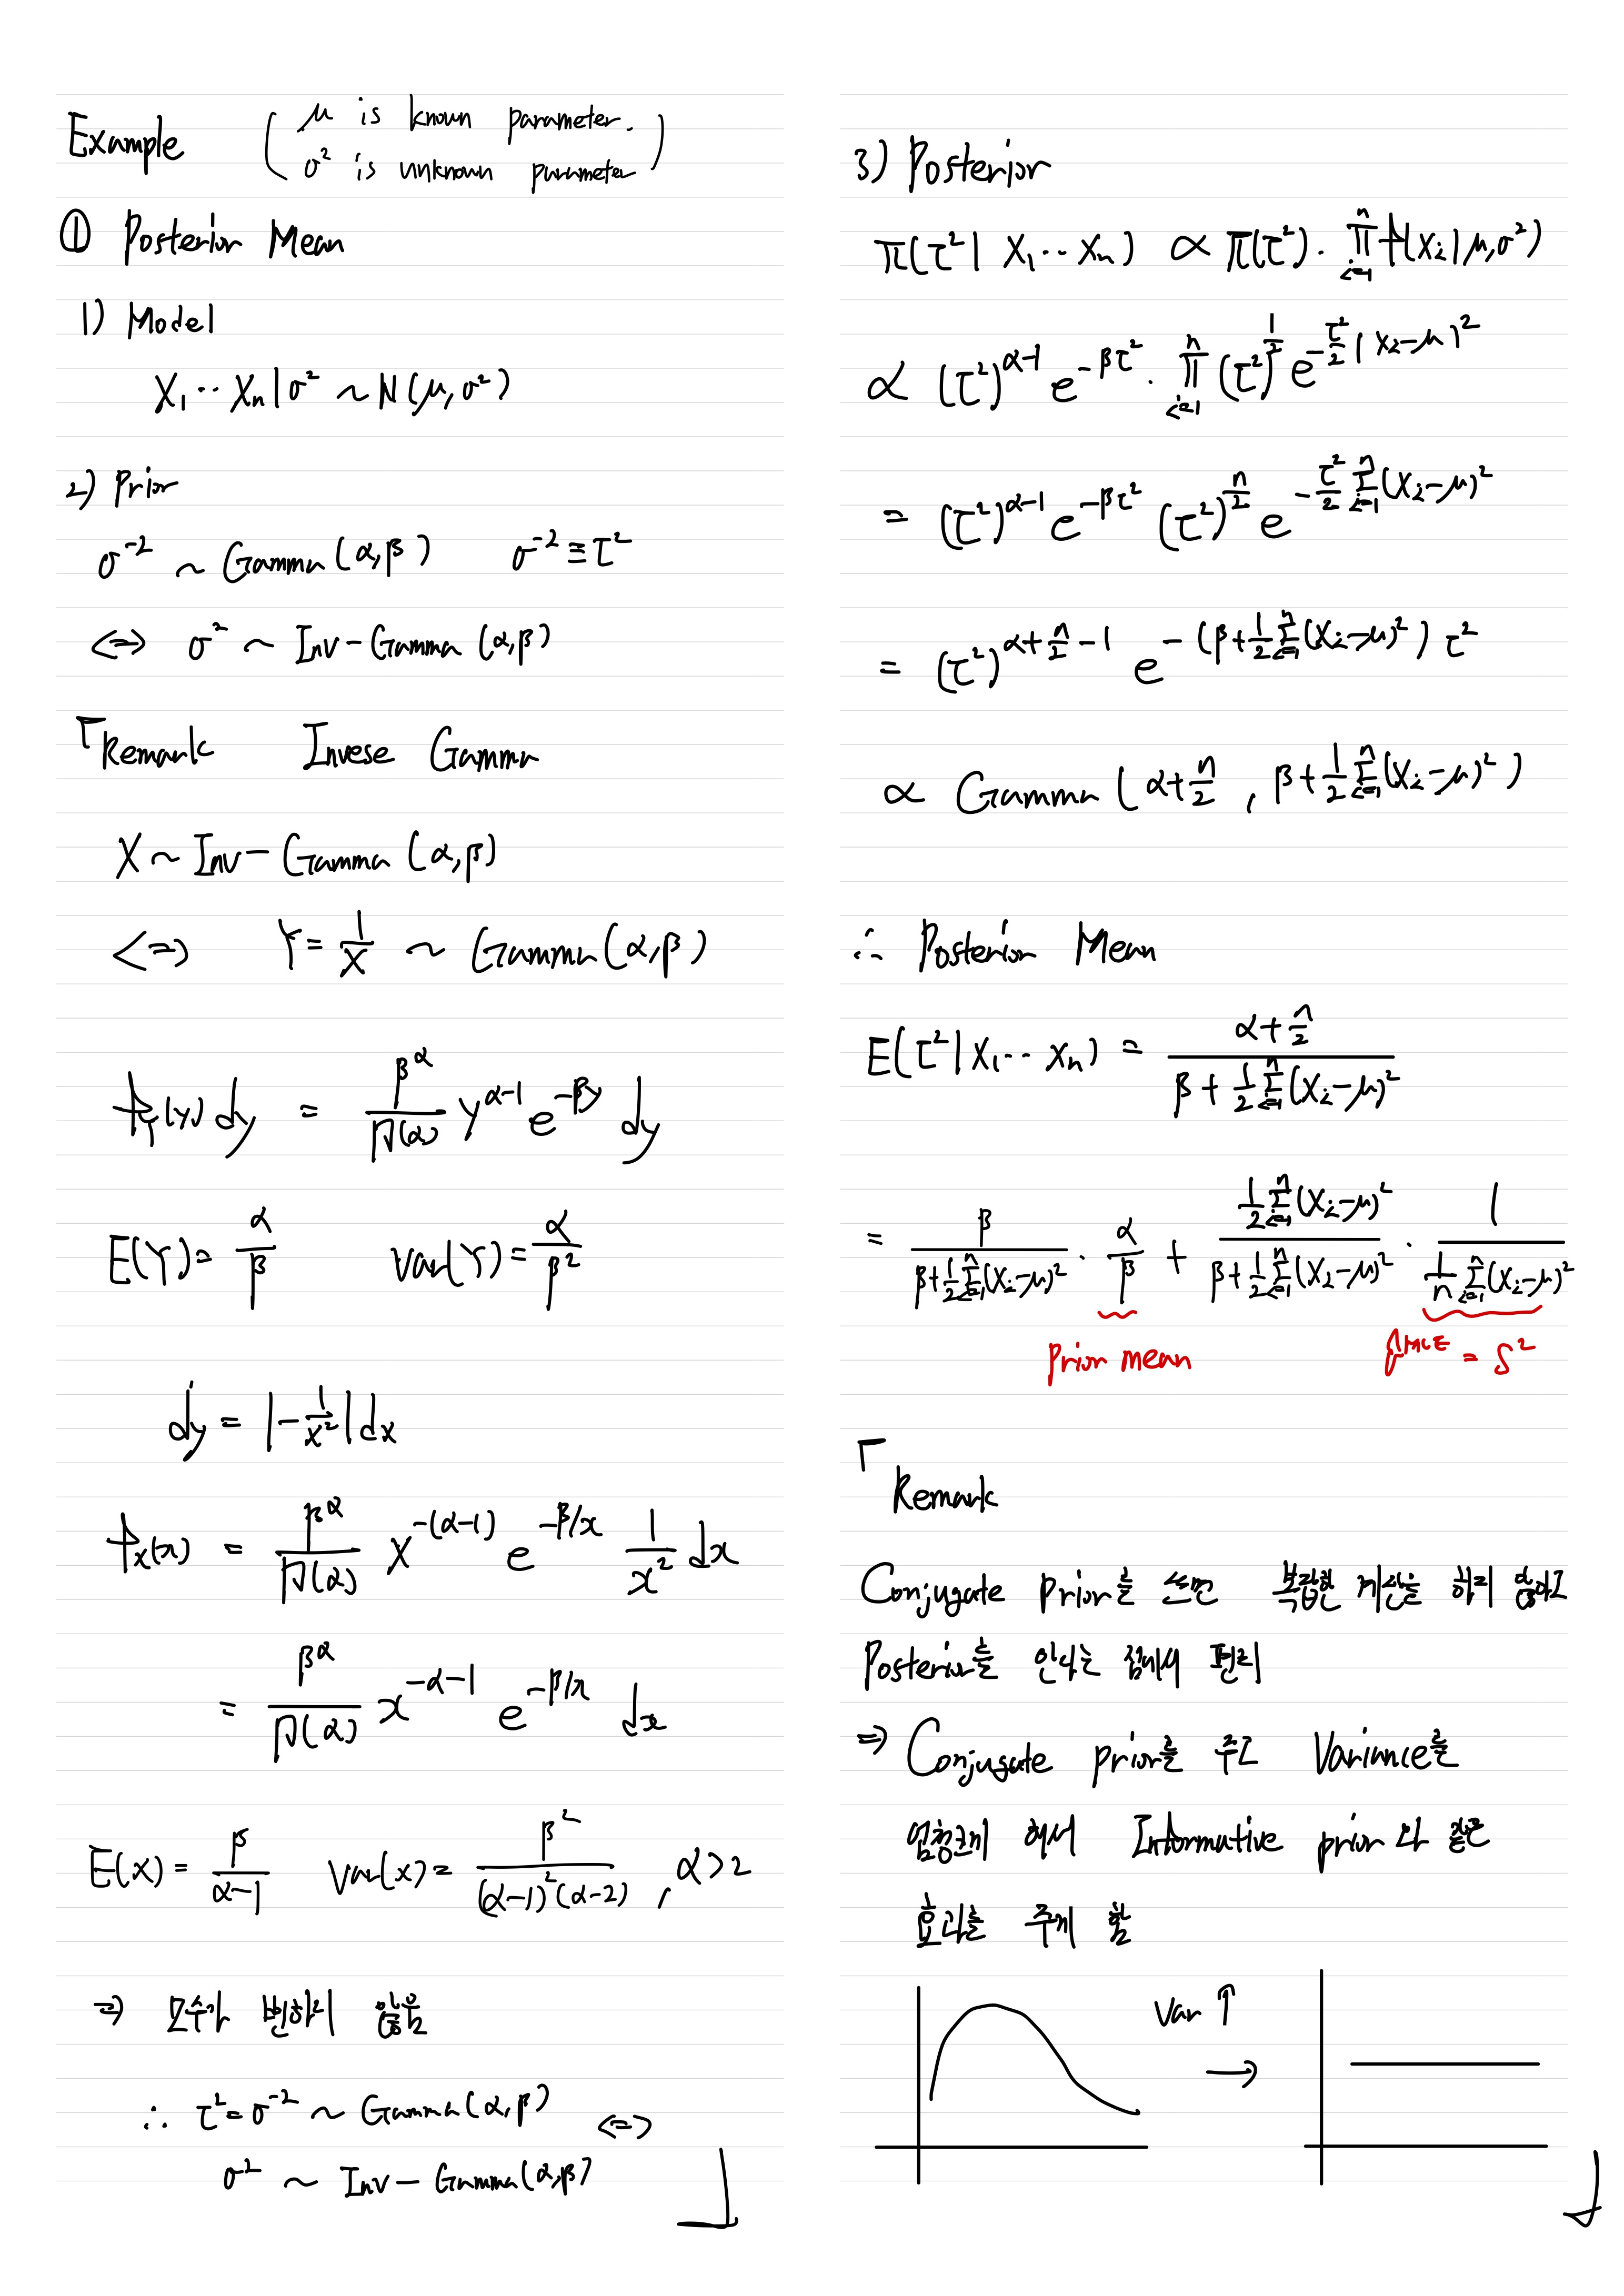 Example ( μ is known parameter.
σ² is unknown parameter )
① Posterior Mean
1) Model
X₁ ⋯ Xₙ | σ² ~ N(μ, σ²)
2) Prior
σ⁻² ~ Gamma(α, β) σ⁻² ≡ τ²
⇔ σ² ~ Inv - Gamma (α, β)
「Remark Invese Gamma
X ~ Inv - Gamma (α, β)
⇔ Y = 1/X ~ Gamma(α, β)
f_Y(y) dy = β^α/Γ(α) y^(α-1) e^(-βy) dy
E(Y) = α/β Var(Y) = α/β²
dy = |-1/x²| dx
f_X(x) = β^α/Γ(α) x^(-(α-1)) e^(-β/x) 1/x² dx
= β^α/Γ(α) x^(-α-1) e^(-β/x) dx
E(X) = β/(α-1) Var(X) = β²/((α-1)²(α-2)) , α>2
⇒ 모수가 변하지 않음
∴ τ² = σ⁻² ~ Gamma(α, β) ⇔
σ² ~ Inv - Gamma(α, β) 」
3) Posterior
π(τ² | X₁ ⋯ Xₙ) ∝ π(τ²) · ∏ᵢ₌₁ⁿ f(Xᵢ | μ, σ²)
∝ (τ²)^(α-1) e^(-βτ²) · ∏ᵢ₌₁ⁿ (τ²)^(1/2) e^(-τ²/2 (Xᵢ-μ)²)
= (τ²)^(α-1) e^(-βτ²) (τ²)^(n/2) e^(-τ²/2 Σᵢ₌₁ⁿ(Xᵢ-μ)²)
= (τ²)^(α+n/2-1) e^(-(β+1/2 Σᵢ₌₁ⁿ(Xᵢ-μ)²) τ²)
∝ Gamma (α+n/2 , β+1/2 Σᵢ₌₁ⁿ(Xᵢ-μ)²)
∴ Posterior Mean
E(τ² | X₁ ⋯ Xₙ) = (α+n/2)/(β+1/2 Σᵢ₌₁ⁿ(Xᵢ-μ)²)
= β/(β+1/2 Σᵢ₌₁ⁿ(Xᵢ-μ)²) · α/β + (1/2 Σᵢ₌₁ⁿ(Xᵢ-μ)²)/(β+1/2 Σᵢ₌₁ⁿ(Xᵢ-μ)²) · 1/(1/n Σᵢ₌₁ⁿ(Xᵢ-μ)²)
Prior mean = S²
「Remark
Conjugate Prior를 쓰면 복잡한 계산을 하지 않아도
Posterior를 안다는 점에서 편리
⇒ Conjugate prior를 주고 Variance를
엄청크게 해서 Informative prior와 같은
효과를 주게 함
Var ↑
→
」